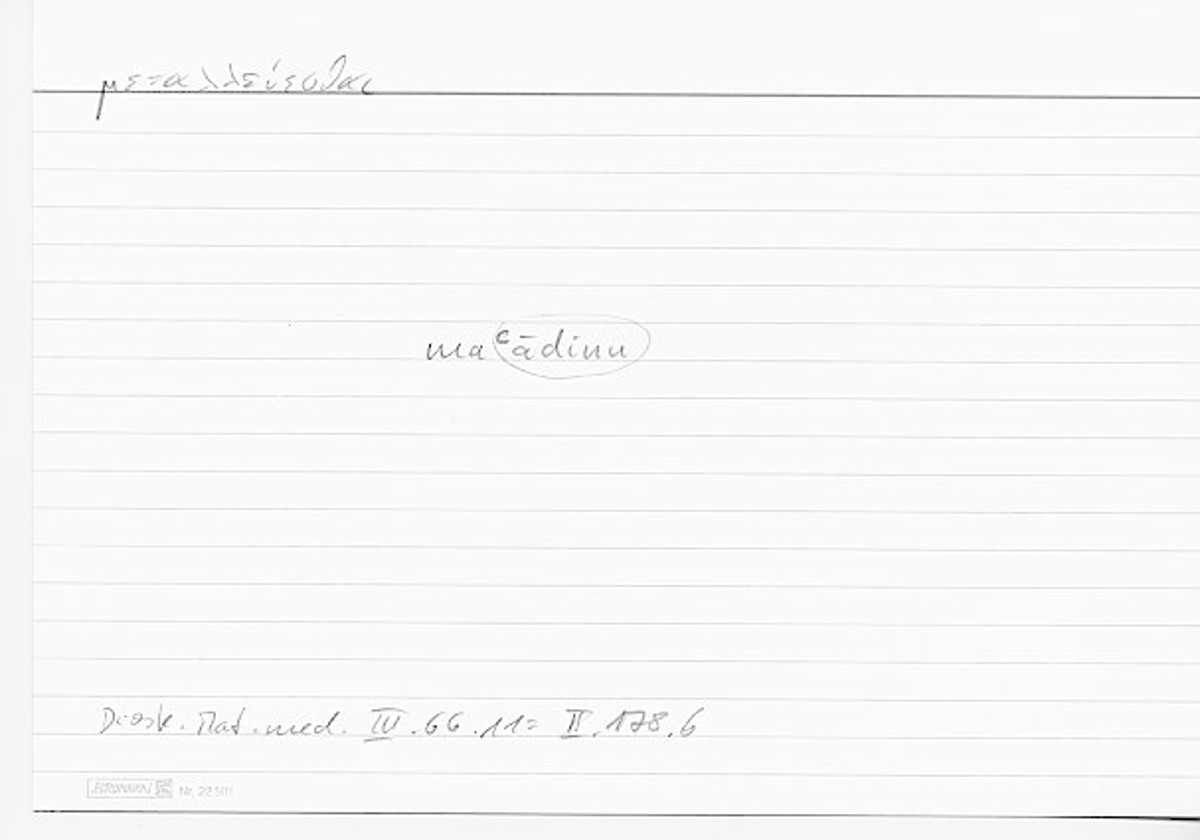 μεταλλεύεσθαι
maʿādinu
Diosk. Mat. med. III.66.11= II.178,6
BRUNNEN Nr. 22 501